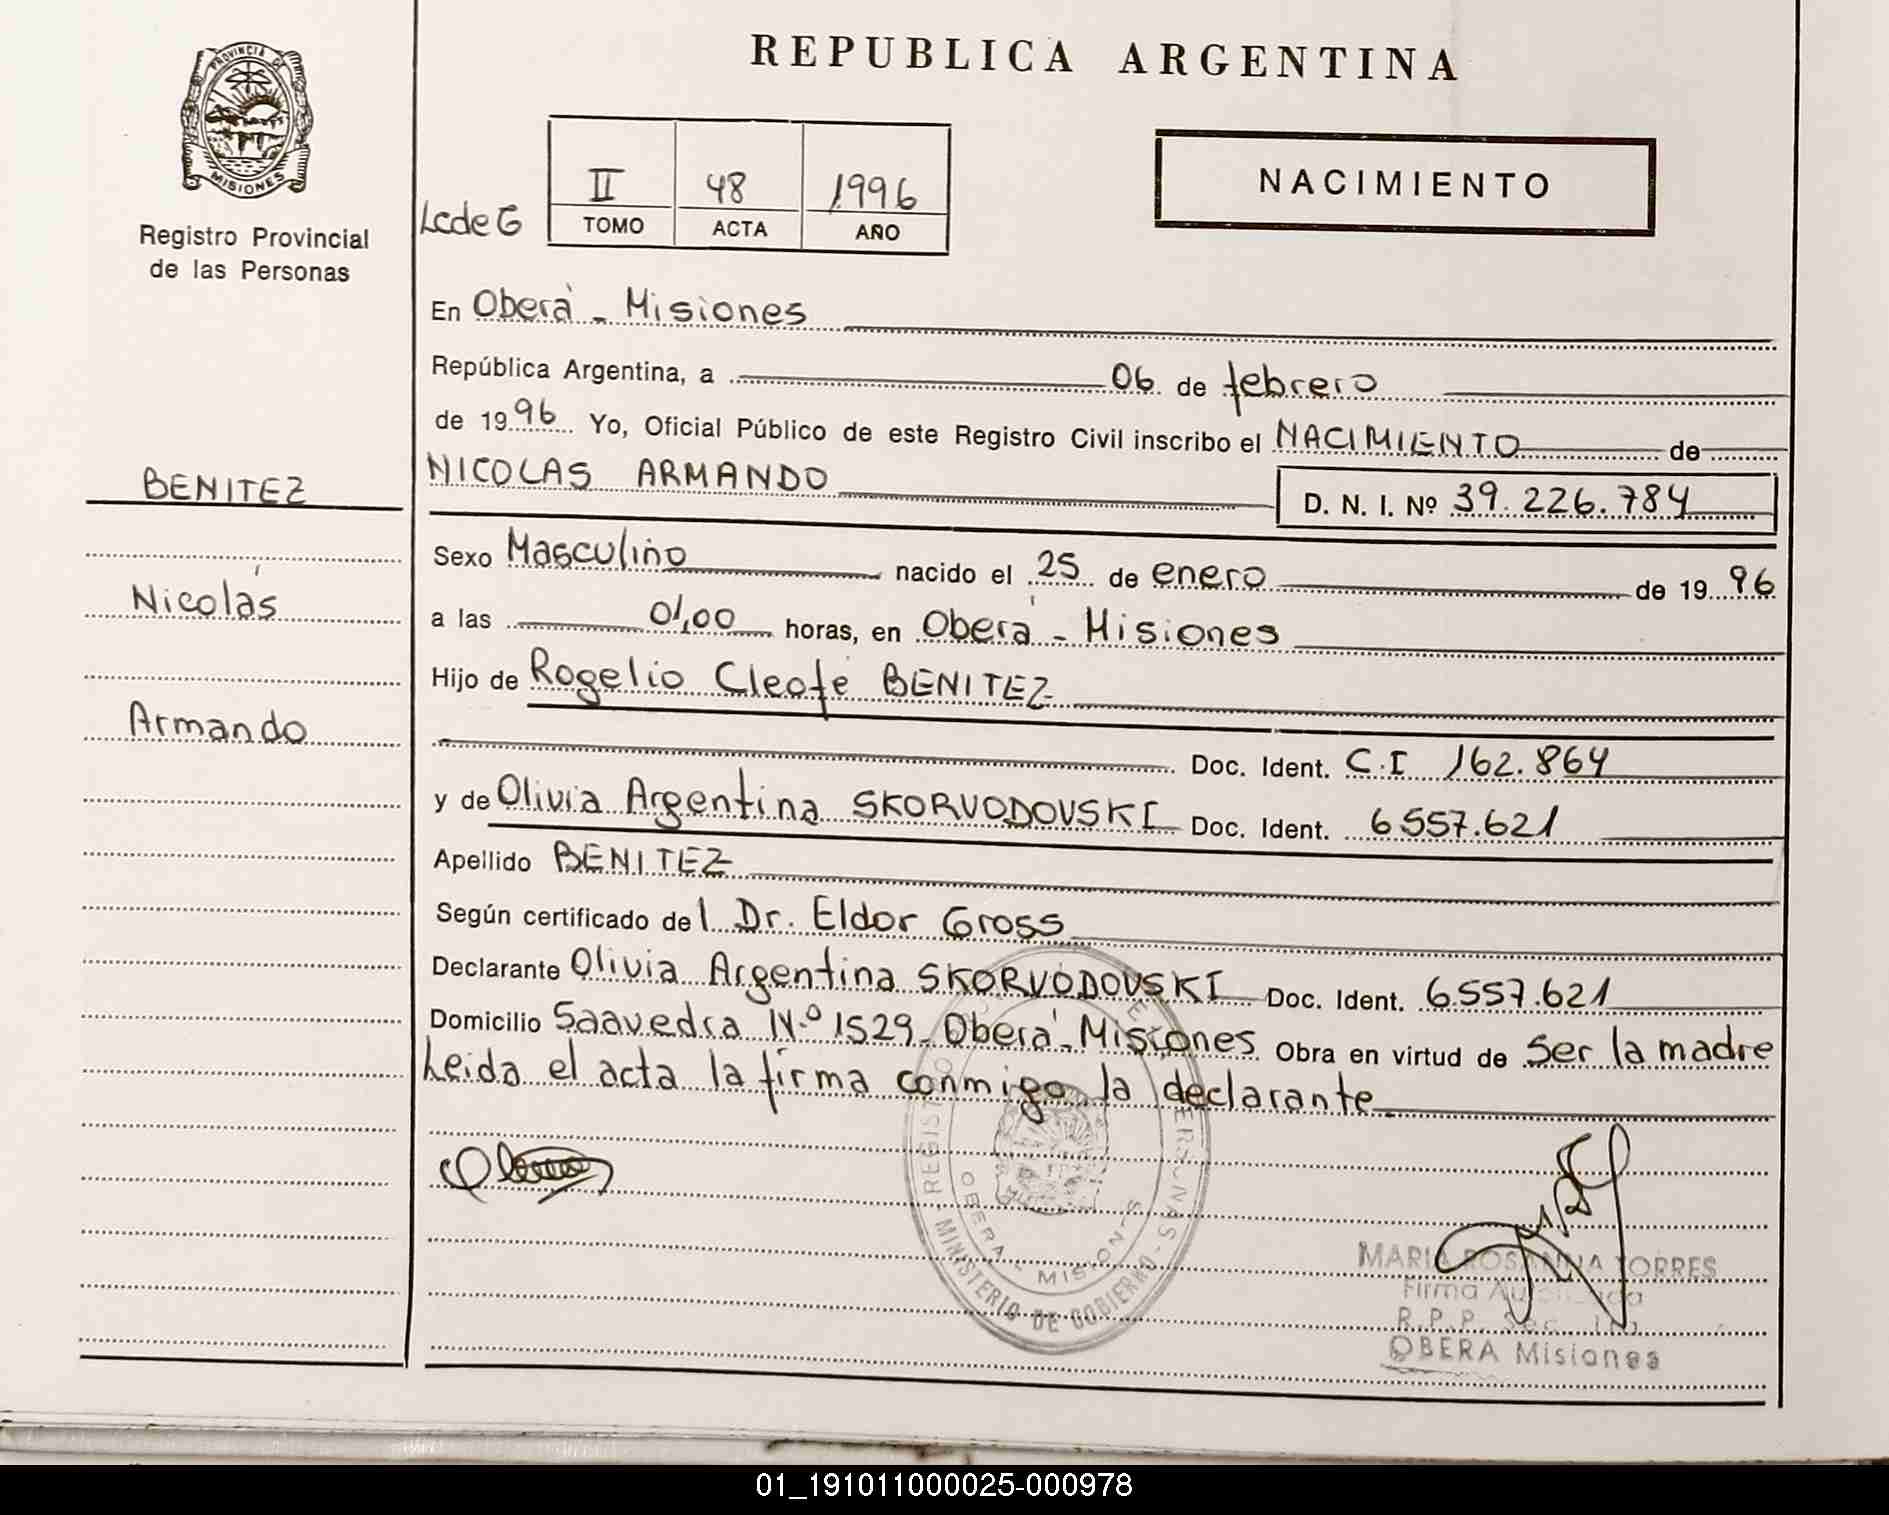 REPUBLICA ARGENTINA
PROVINCIA DE
MISIONES
Registro Provincial
de las Personas
NACIMIENTO
LcdeG
II 48 1996
TOMO ACTA AÑO
En Oberá - Misiones
República Argentina, a 06 de febrero
de 1996 Yo, Oficial Público de este Registro Civil inscribo el NACIMIENTO de
BENITEZ
Nicolás
Armando
NICOLAS ARMANDO D. N. I. Nº 39.226.784
Sexo Masculino nacido el 25 de enero de 1996
a las 01,00 horas, en Oberá - Misiones
Hijo de Rogelio Cleofé BENITEZ
Doc. Ident. C.I 162.864
y de Olivia Argentina SKORVODOVSKI Doc. Ident. 6557.621
Apellido BENITEZ
Según certificado del Dr. Eldor Gross
Declarante Olivia Argentina SKORVODOVSKI Doc. Ident. 6.557.621
Domicilio Saavedra N.º 1529 - Oberá - Misiones Obra en virtud de ser la madre
Leida el acta la firma conmigo la declarante
MINISTERIO DE GOBIERNO
OBERA - MISIONES
MARIA ROSANNA TORRES
Firma
R.P.P.
OBERA Misiones
01_191011000025-000978